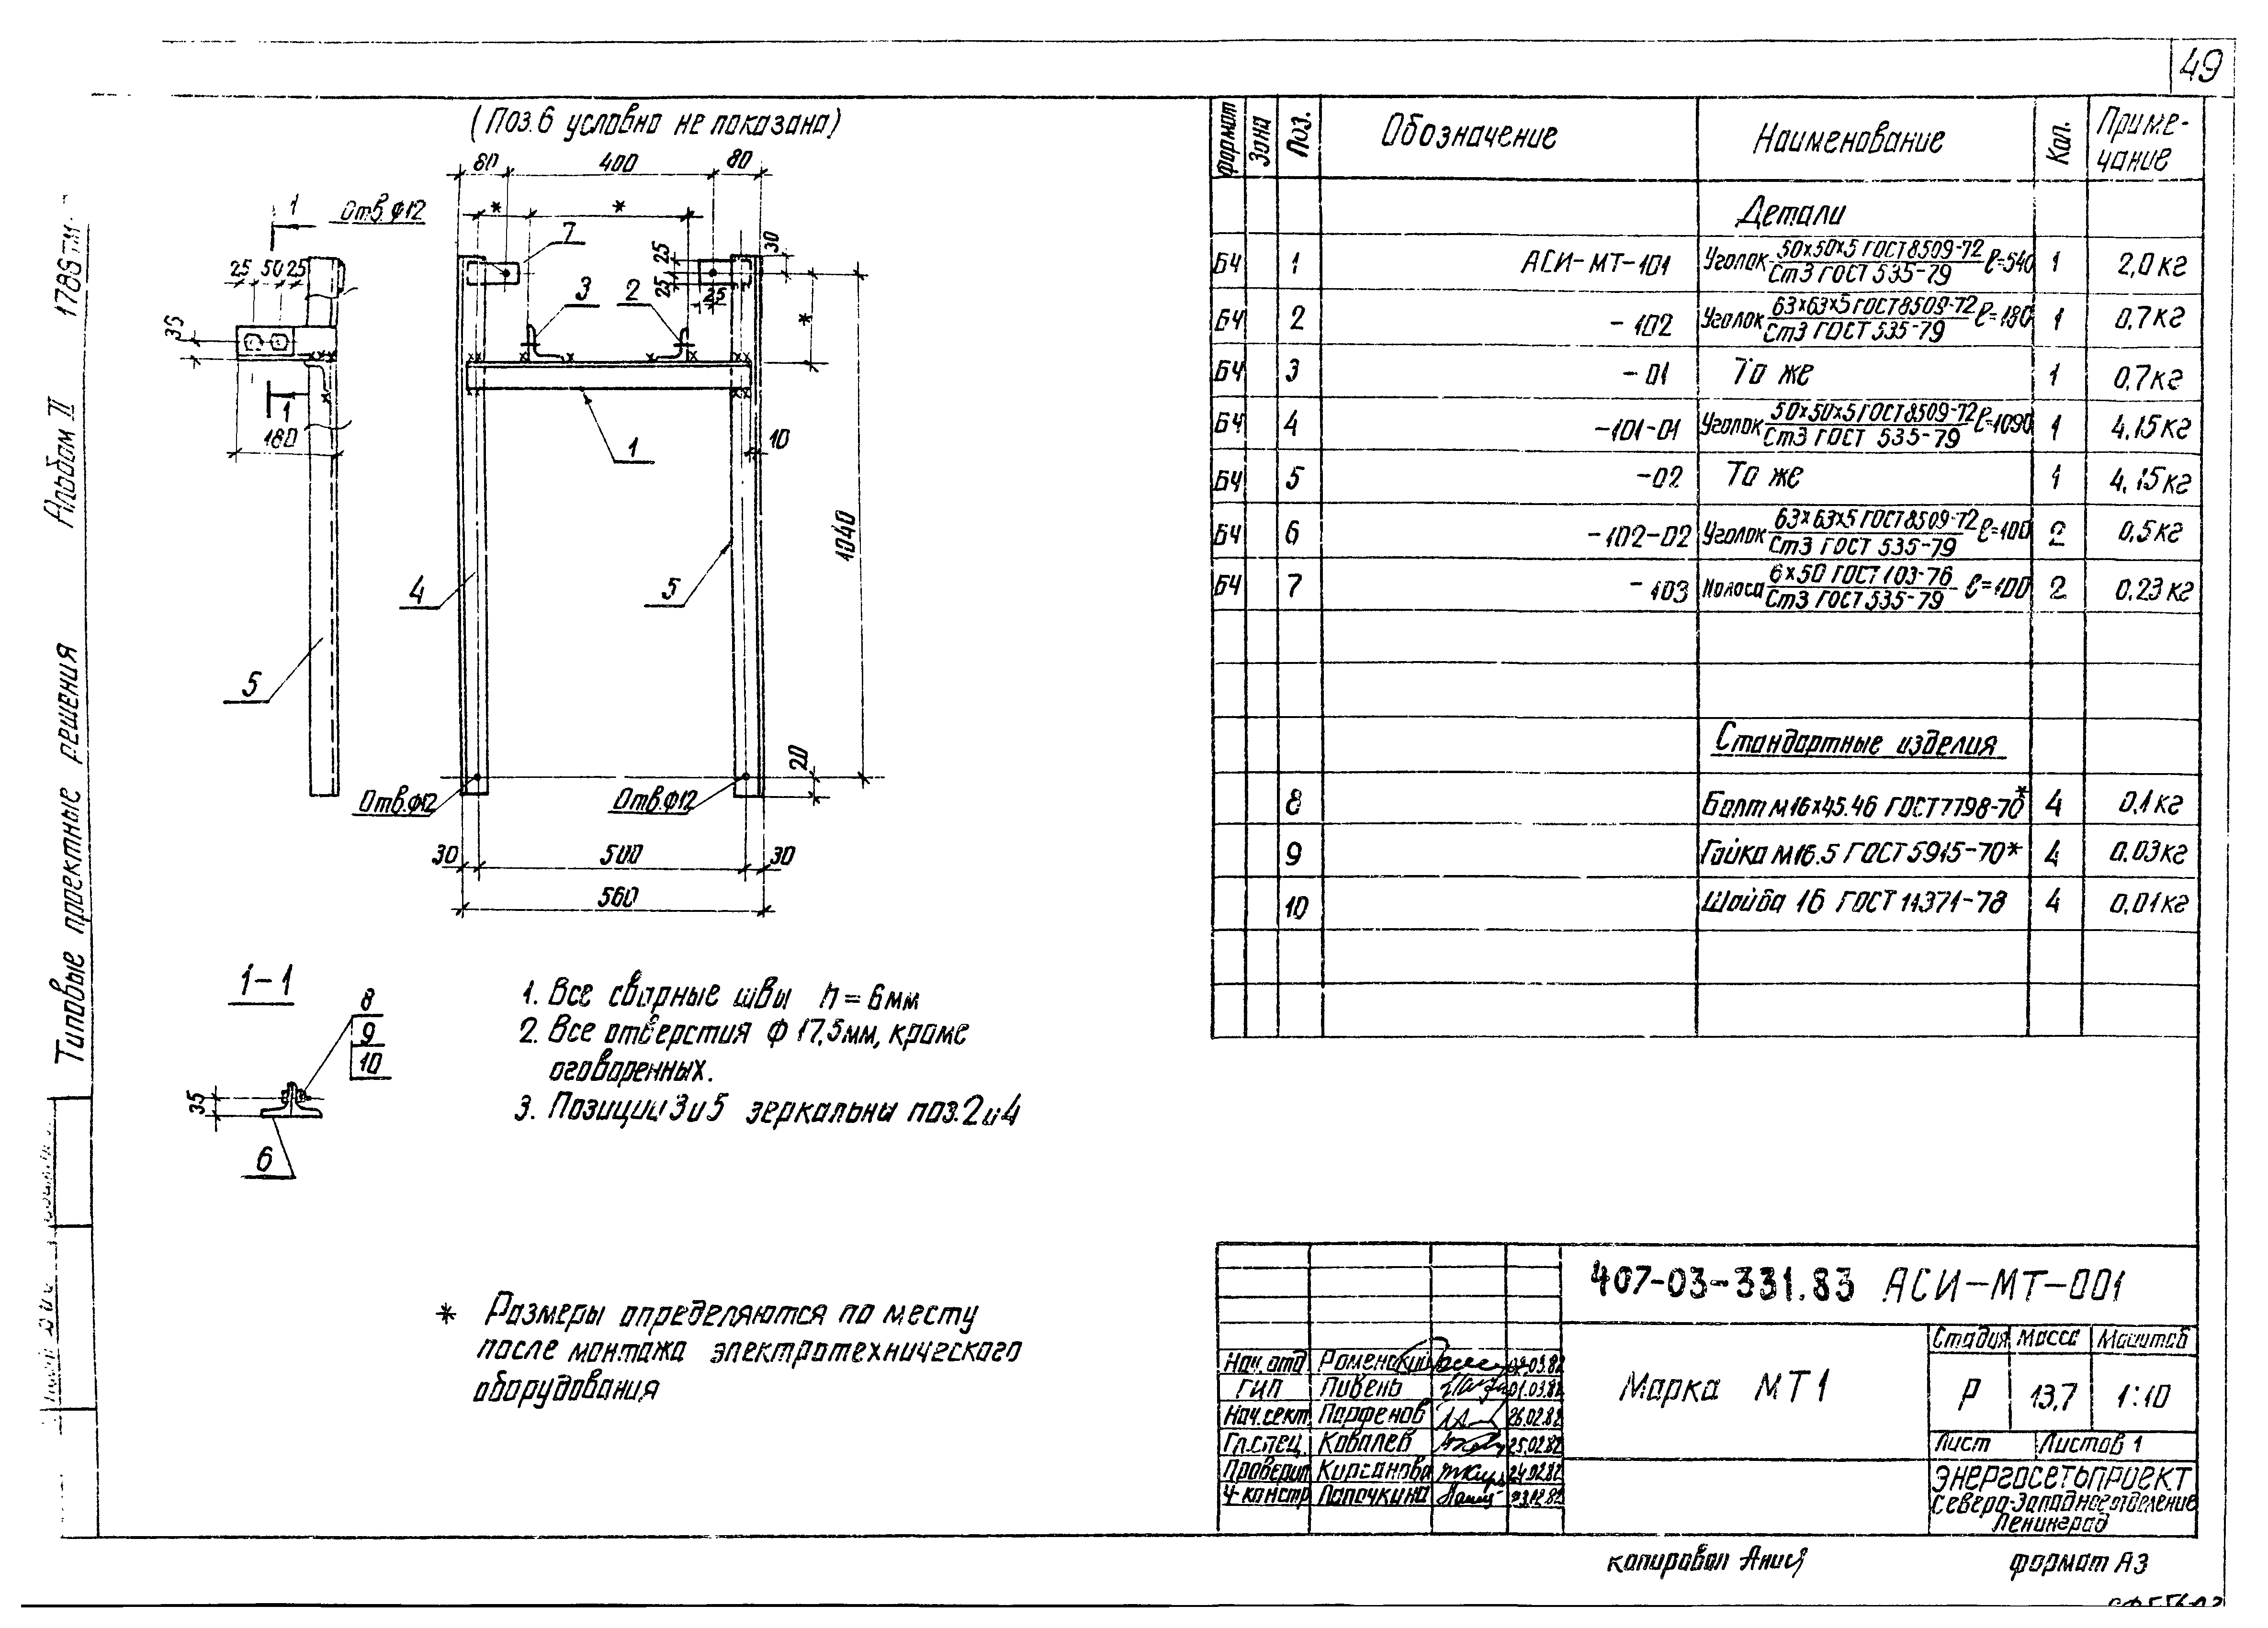 49
(Поз.6 условно не показана)
80 400 80
1 Отв.Ф12
* *
7
25 50 25
25
25
25
30
3 2
*
35
1
180
1
10
1040
4 5
5
20
Отв.Ф12 Отв.Ф12
30 500 30
560
1-1
8
9
10
35
6
1. Все сварные швы h = 6мм
2. Все отверстия Ф 17,5мм, кроме
оговоренных.
3. Позиции 3 и 5 зеркальны поз.2 и 4
* Размеры определяются по месту
после монтажа электротехнического
оборудования
Типовые проектные решения Альбом II 1785тм
Формат Зона Поз. Обозначение Наименование Кол. Приме-
чание
Детали
БЧ 1 АСИ-МТ-101 Уголок 50х50х5 ГОСТ 8509-72 / Ст3 ГОСТ 535-79 ℓ=540 1 2,0 кг
БЧ 2 -102 Уголок 63х63х5 ГОСТ 8509-72 / Ст3 ГОСТ 535-79 ℓ=180 1 0,7 кг
БЧ 3 -01 То же 1 0,7 кг
БЧ 4 -101-01 Уголок 50х50х5 ГОСТ 8509-72 / Ст3 ГОСТ 535-79 ℓ=1090 1 4,15 кг
БЧ 5 -02 То же 1 4,15 кг
БЧ 6 -102-02 Уголок 63х63х5 ГОСТ 8509-72 / Ст3 ГОСТ 535-79 ℓ=100 2 0,5 кг
БЧ 7 -103 Полоса 6х50 ГОСТ 103-76 / Ст3 ГОСТ 535-79 ℓ=100 2 0,23 кг
Стандартные изделия
8 Болт М16х45.46 ГОСТ 7798-70* 4 0,1 кг
9 Гайка М16.5 ГОСТ 5915-70* 4 0.03 кг
10 Шайба 16 ГОСТ 11371-78 4 0,01 кг
407-03-331.83 АСИ-МТ-001
Марка МТ1
Стадия Масса Масштаб
Р 13,7 1:10
Лист Листов 1
ЭНЕРГОСЕТЬПРОЕКТ
Северо-Западное отделение
Ленинград
Нач.отд Роменский 02.03.82
ГИП Пивень 01.03.82
Нач.сект. Парфенов 26.02.82
Гл.спец. Ковалев 25.02.82
Проверил Кирсанова 24.02.82
Ч-констр Лапочкина
копировал Анися формат А3